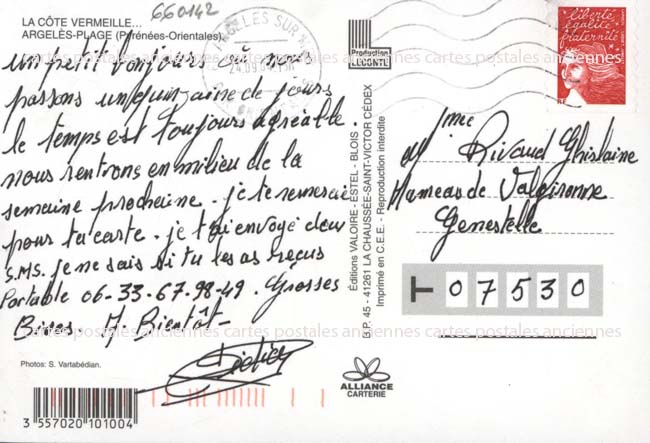 660142
LA CÔTE VERMEILLE...
ARGELÈS-PLAGE (Pyrénées-Orientales).
un petit bonjour où nous
passons un quinzaine de jours
le temps est toujours agréable.
nous rentrons en milieu de la
semaine prochaine. je te remercie
pour ta carte. je t'ai envoyé deux
S.M.S. je ne sais si tu les as reçus
Portable 06-33-67-98-49. Grosses
Bises. A. Bientôt-
Didier
Photos: S. Vartabédian.
3 557020 101004
ARGELES SUR MER
24.09.0
Production
LECONTE
Éditions VALOIRE - ESTEL - BLOIS
B.P. 45 - 41261 LA CHAUSSÉE-SAINT-VICTOR CÉDEX
Imprimé en C.E.E. - Reproduction interdite
ALLIANCE
CARTERIE
liberté
égalité
fraternité
RF
Mme Rivaud Ghislaine
Hameau de Valgironne
Genestelle
T 07530
cartes postales anciennes cartes postales anciennes cartes postales anciennes
cartes postales anciennes cartes postales anciennes cartes postales anciennes